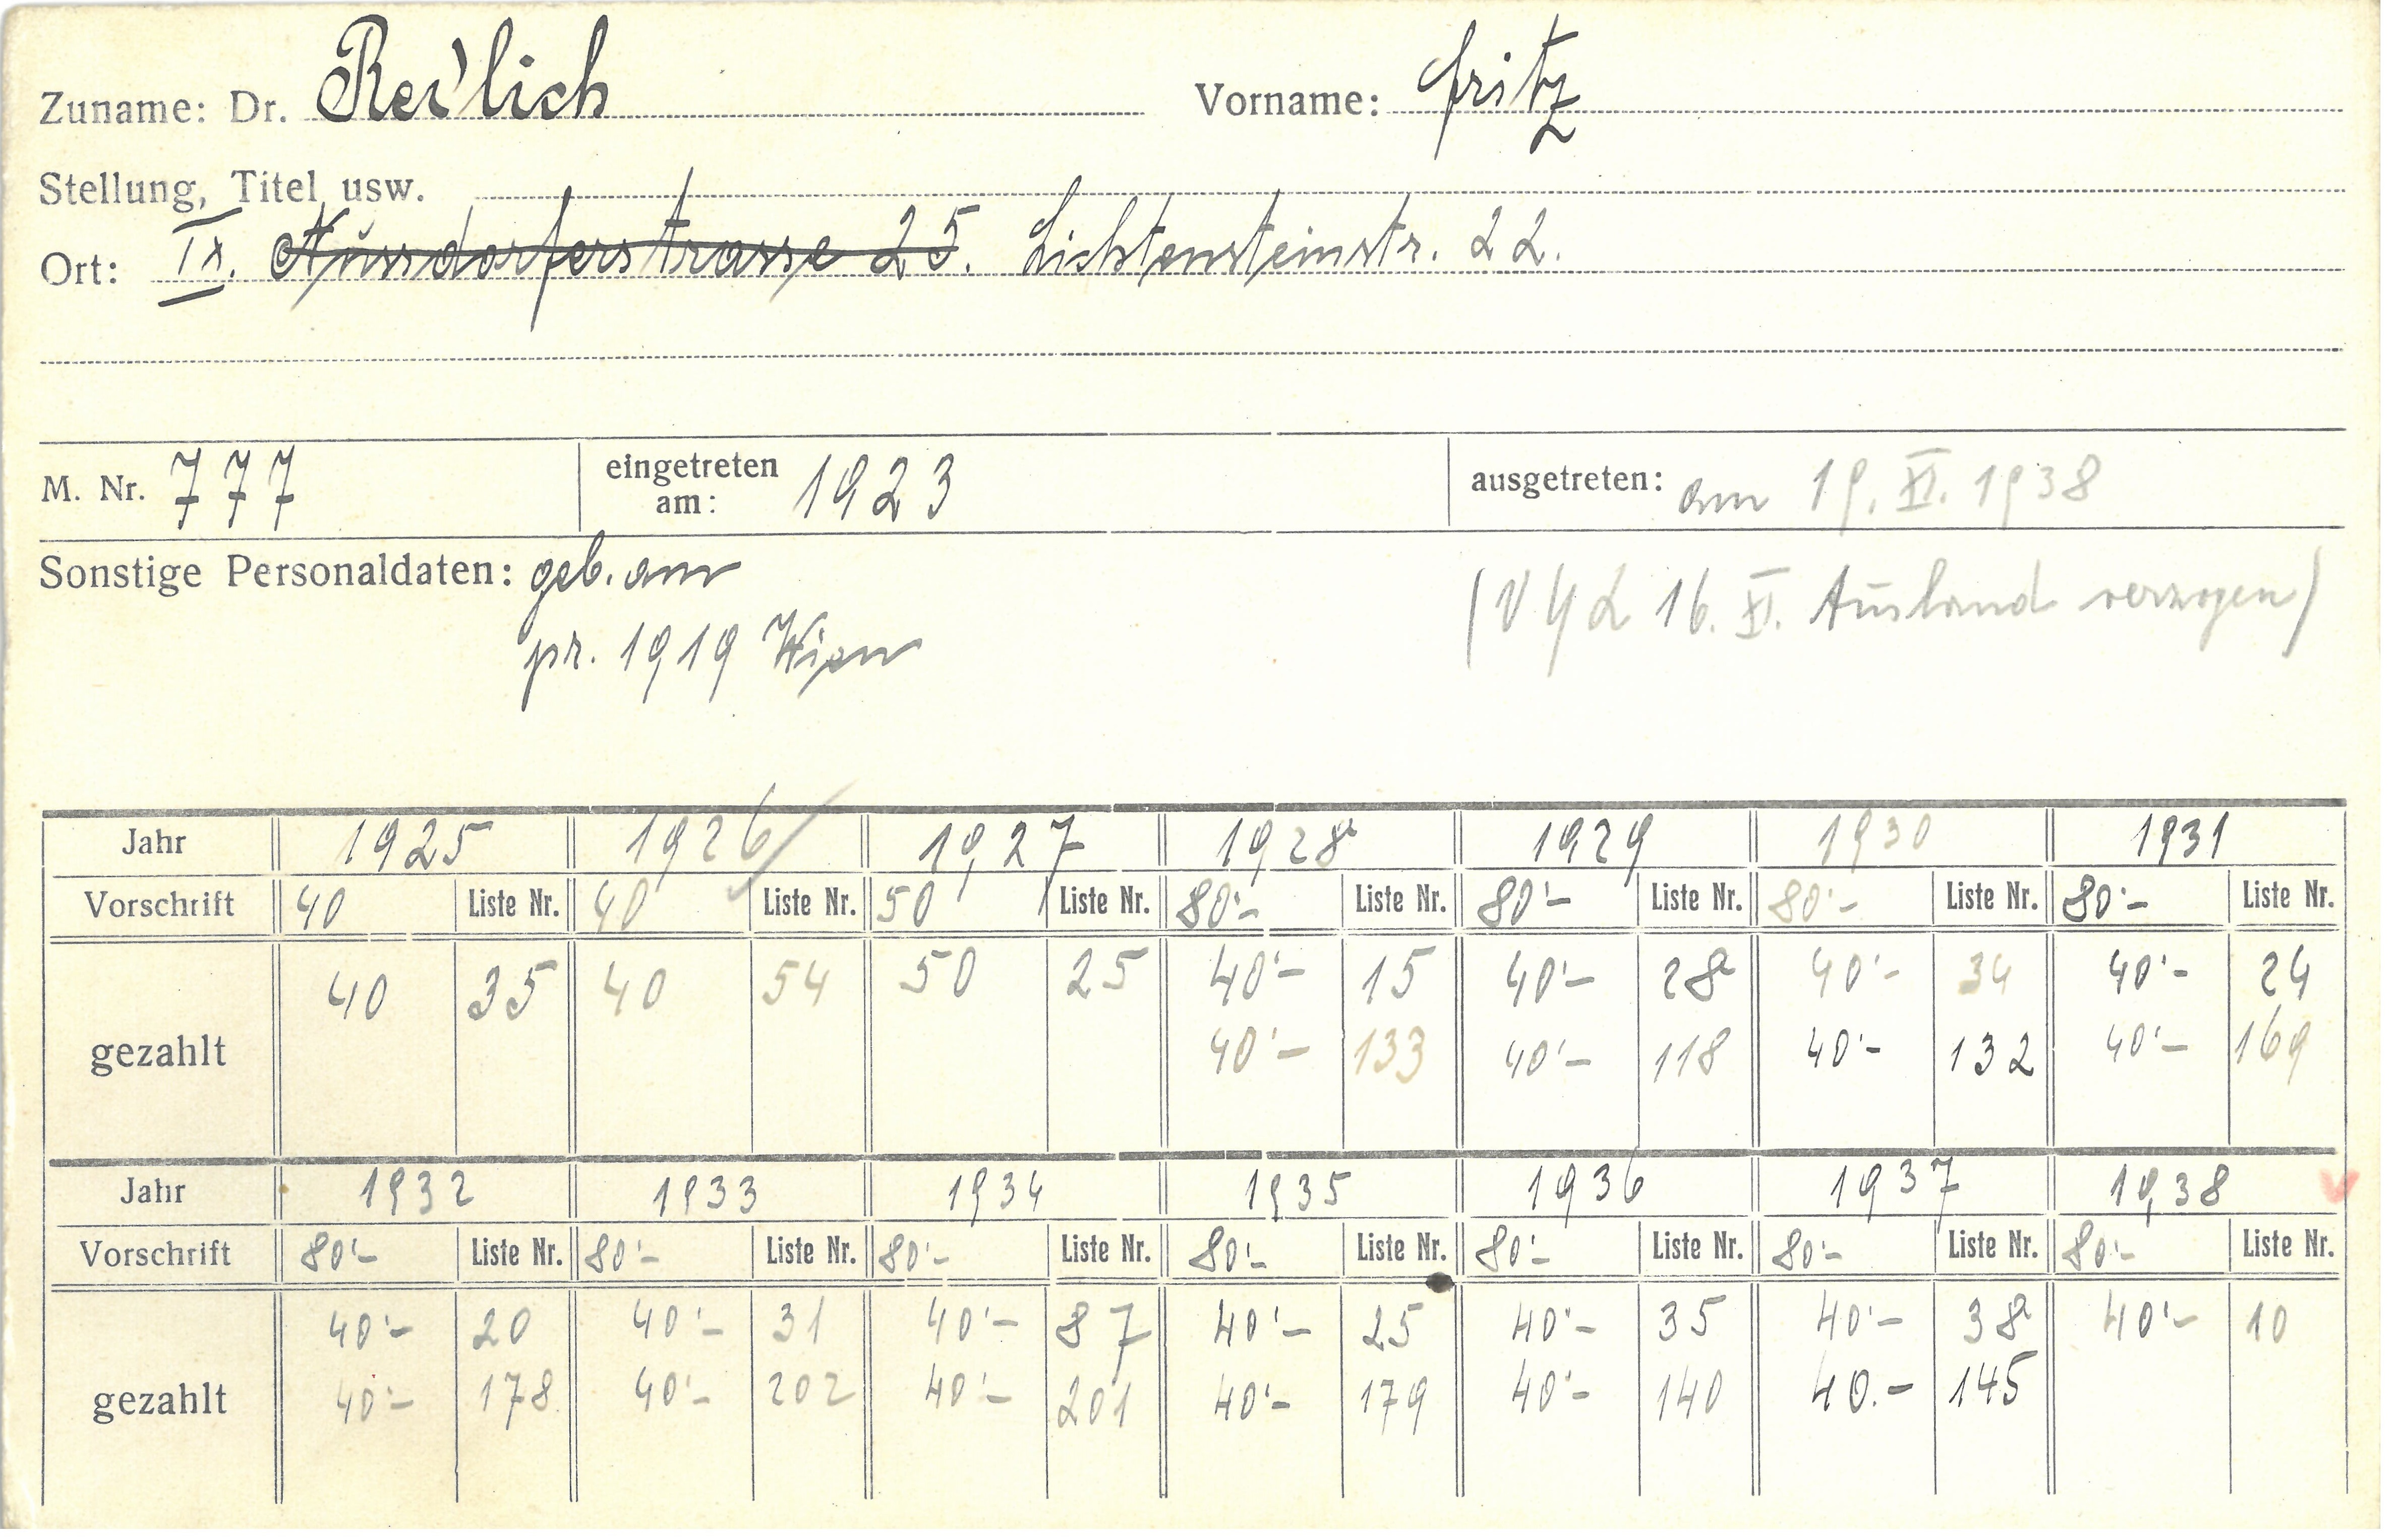 Zuname: Dr. Redlich Vorname: Fritz
Stellung, Titel usw.
Ort: IX. Nussdorferstrasse 25. Lichtensteinstr. 22.
M. Nr. 777 eingetreten am: 1923 ausgetreten: am 19. XI. 1938
Sonstige Personaldaten: geb. am (V 16. XI. Ausland verzogen)
pr. 1919 Wien
Jahr 1925 1926 1927 1928 1929 1930 1931
Vorschrift 40 Liste Nr. 40 Liste Nr. 50 Liste Nr. 80'- Liste Nr. 80'- Liste Nr. 80'- Liste Nr. 80'- Liste Nr.
gezahlt 40 35 40 54 50 25 40'- 15 40'- 28 40'- 34 40'- 24
40'- 133 40'- 118 40'- 132 40'- 169
Jahr 1932 1933 1934 1935 1936 1937 1938
Vorschrift 80'- Liste Nr. 80'- Liste Nr. 80'- Liste Nr. 80'- Liste Nr. 80'- Liste Nr. 80'- Liste Nr. 80'- Liste Nr.
gezahlt 40'- 20 40'- 31 40'- 87 40'- 25 40'- 35 40'- 38 40'- 10
40'- 178 40'- 202 40'- 201 40'- 179 40'- 140 40.- 145